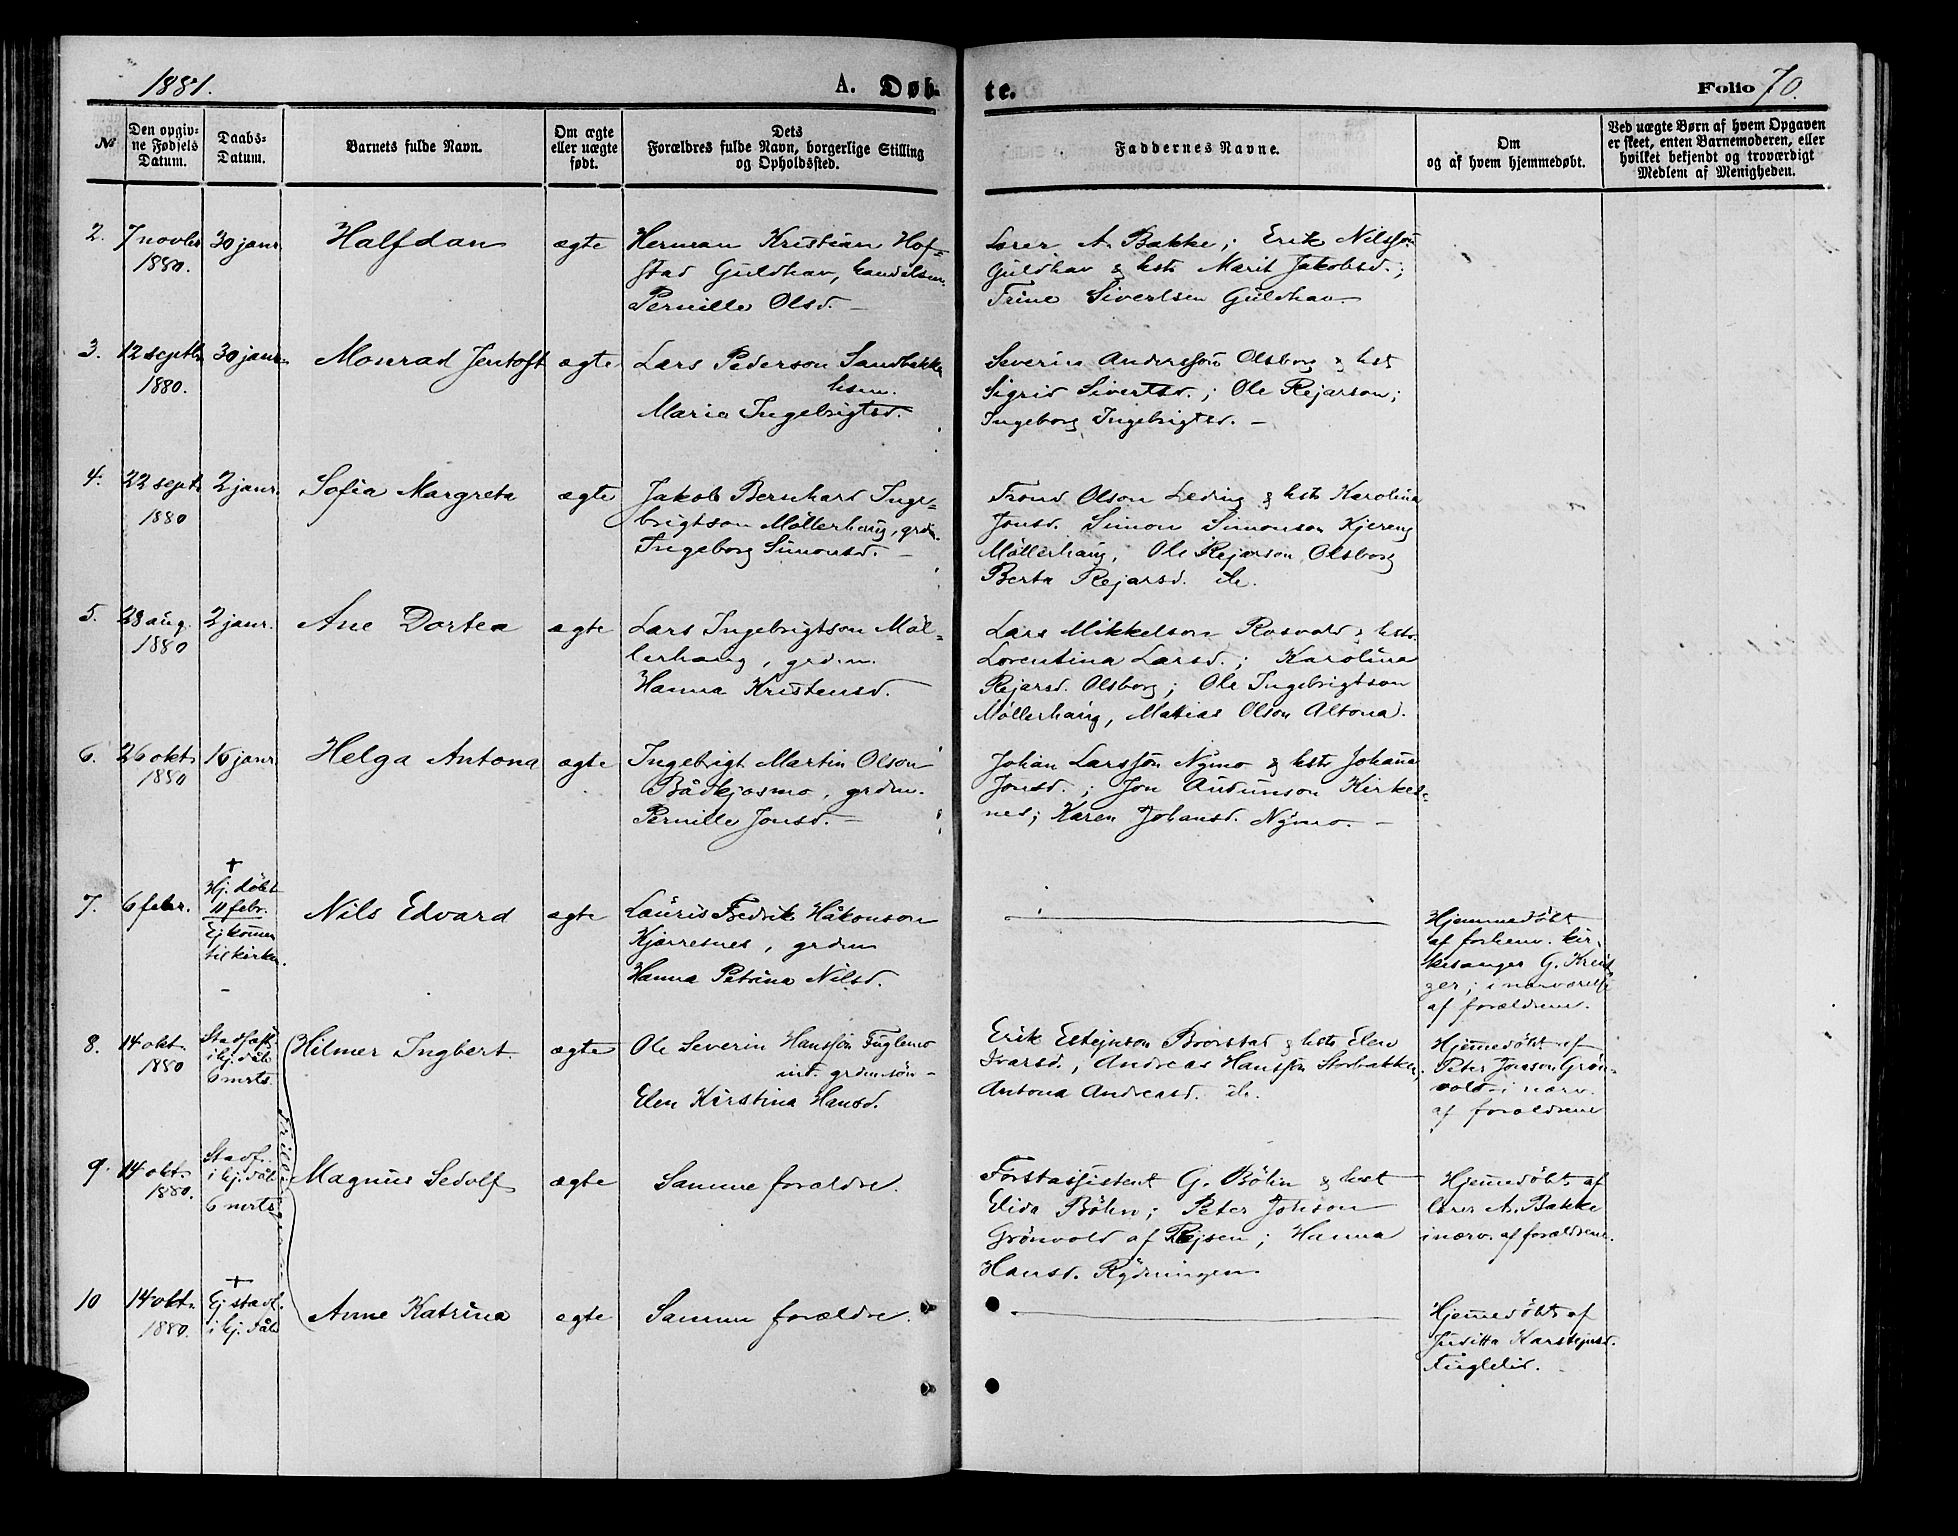 1881.
A. Døb-
te.
Folio 70.
№
Den opgiv-
ne Fødsels
Datum.
Daabs-
Datum.
Barnets fulde Navn.
Om ægte
eller uægte
født.
Dets
Forældres fulde Navn, borgerlige Stilling
og Opholdssted.
Faddernes Navne.
Om
og af hvem hjemmedøbt.
Ved uægte Børn af hvem Opgaven
er skeet, enten Barnemoderen, eller
hvilket bekjendt og troværdigt
Medlem af Menigheden.
2.
7 novbr
1880.
30 janr.
Halfdan
ægte
Herman Kristian Hof-
stad Guldhav, handelsm.
Pernille Olsd. —
Lærer A. Bakke; Erik Nilssøn
Guldhav & hst Marit Jakobsd.;
Trine Sivertsen Guldhav
3.
12 septbr
1880.
30 janr.
Monrad Jentoft
ægte
Lars Pederson Sandbakken
hsm.
Maria Ingebrigtsd.
Severin Anderssøn Olsborg & hst
Sigrid Sivertsd.; Ole Rejarson;
Ingeborg Ingebrigtsd. —
4.
22 septr
1880
2 janr.
Sofia Margreta
ægte
Jakob Bernhard Inge-
brigtson Möllerhaug, grdm.
Ingeborg Simonsd. —
Trond Olson Leding & hst Karolina
Jonsd. Simon Simonson Kjereng
Möllerhaug, Ole Rejarson Olsborg
Berta Rejarsd. ib.
5.
28 aug.
1880
2 janr.
Ane Dortea
ægte
Lars Ingebrigtson Möl-
lerhaug, grdm.
Hanna Kristensd.
Lars Mikkelson Rosvold & hst.
Lorentina Larsd.; Karolina
Rejarsd. Olsborg; Ole Ingebrigtson
Möllerhaug, Matias Olson Altona.
6.
26 okt.
1880
16 janr
Helga Antona
ægte
Ingebrigt Martin Olson
Bådkjosmo, grdm.
Pernille Jonsd. —
Johan Larssøn Nymo & hst Johana
Jonsd.; Jon Audunson Kirkes-
nes; Karen Johansd. Nymo. —
7.
6 febr.
†
Hj. döbt
11 febr.
Ej kommen
til kirken.
Nils Edvard
ægte
Lauris Fredrik Håkonson
Kjærresnes, grdm
Hanna Petrina Nilsd.
Hjemmedöbt
af forhenv. kir-
kesanger G. Kreut-
zer; i nærværelse
af forældrene.
8.
14 okt.
1880
Stadfæst.
i hj. dåb
6 mrts.
Hilmer Ingbert.
ægte
Ole Severin Hanssøn Fuglemo
ind. grdm.søn —
Elen Kirstina Hansd.
Erik Estejnson Brorstad & hst Elen
Ivarsd.; Andreas Hanssøn Storbakken,
Antona Andreasd. ib.
Hjemmedöbt af
Peter Jonson Grön-
vold i nærv.
af forældrene
9.
14 okt.
1880.
Stadf.
i hj. dåb
6 mrts
Magnus Sedolf
ægte
Samme forældre.
Forstassistent G. Böhn & hst
Elida Böhn; Peter Johson
Grönvold af Rejsen; Hanna
Hansd. Rydningen
Hjemmedöbt af
lærer A. Bakke
i nærv. af forældrene.
10
14 okt.
1880.
†
Ej stadf.
i hj. dåb
Anne Katrina
ægte
Samme forældre.
Hjemmedöbt af
Juditta Karstejnsd.
Fuglelid.